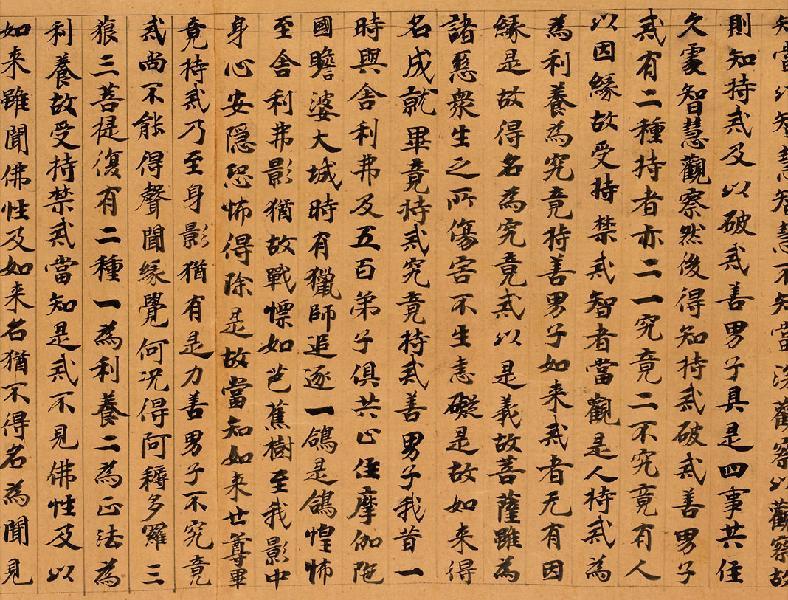 知當以知慧知慧不知當深觀察以觀察故
則知持戒及以破戒善男子具是四事共住
久處智慧觀察然後得知持戒破戒善男子
戒有二種持者亦二一究竟二不究竟有人
以因緣故受持禁戒智者當觀是人持戒為
為利養為究竟持善男子如來戒者无有因
緣是故得名為究竟戒以是義故菩薩雖為
諸惡衆生之所傷害不生恚礙是故如來得
名成就畢竟持戒究竟持戒善男子我昔一
時與舍利弗及五百弟子俱共止住摩伽陁
國瞻婆大城時有獵師追逐一鴿是鴿惶怖
至舍利弗影猶故戰慓如芭蕉樹至我影中
身心安隱恐怖得除是故當知如來世尊畢
竟持戒乃至身影猶有是力善男子不究竟
戒尚不能得聲聞緣覺何況得阿耨多羅三
藐三菩提復有二種一為利養二為正法為
利養故受持禁戒當知是戒不見佛性及以
如來雖聞佛性及如來名猶不得名為聞見